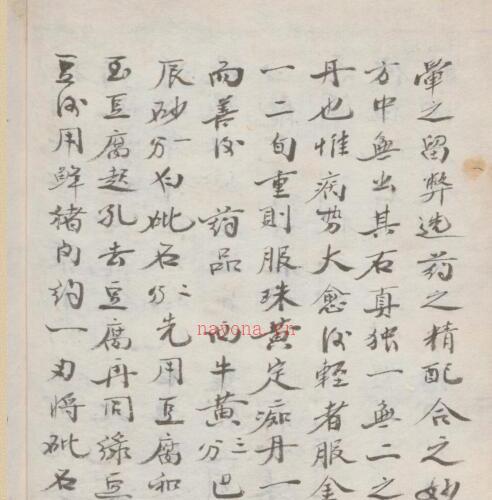 之留弊选药之精配合之妙
方中無出其右真独一無二之
丹也惟病势大愈後輕者服金
一二旬重則服珠黄定痴丹一
而善後 药品 西牛黄三分 巴
辰砂一分 砒石二分 先用豆腐和
豆腐起孔去豆腐再同绿豆
豆後用鮮猪肉約一刃將砒石
nayona.cn